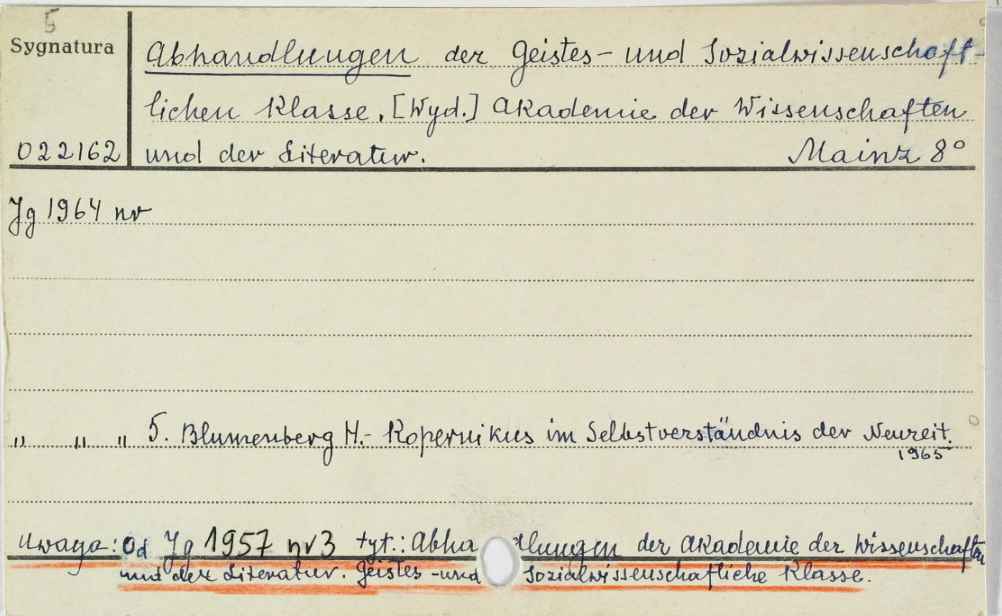 5
Sygnatura
Abhandlungen der Geistes- und Sozialwissenschaft-
lichen Klasse. [Wyd.] Akademie der Wissenschaften
022162 und der Literatur. Mainz 8°
Jg 1964 nr
„ „ „ 5. Blumenberg H.- Kopernikus im Selbstverständnis der Neuzeit.
1965
Uwaga: Od Jg 1957 nr 3 tyt.: Abha dlungen der Akademie der Wissenschaften
und der Literatur. Geistes - und Sozialwissenschaftliche Klasse.